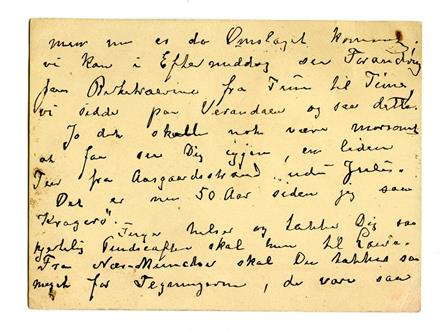 men nu er da Omslaget kommen,
vi kan i Eftermiddag see Forandring
paa Birketræerne fra Time til Time,
vi sidde paa Verandaen og see dette.
Jo det skal nok være morsomt
at faa see Dig igjen, en liden
Tour fra Aasgaardstrand
Det er nu 50 Aar siden jeg saa
"Kragerø".
Inger hilser og takker Dig saa
hjertelig skal hun til
Fra Næs-Musæet skal Du takkes saa
meget for Tegningerne, de vare saa